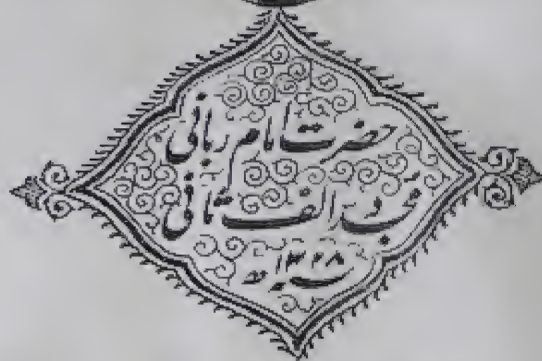 حضرت امام ربانی
مجدد الف ثانی
سنہ ۱۳۲۸ ھ